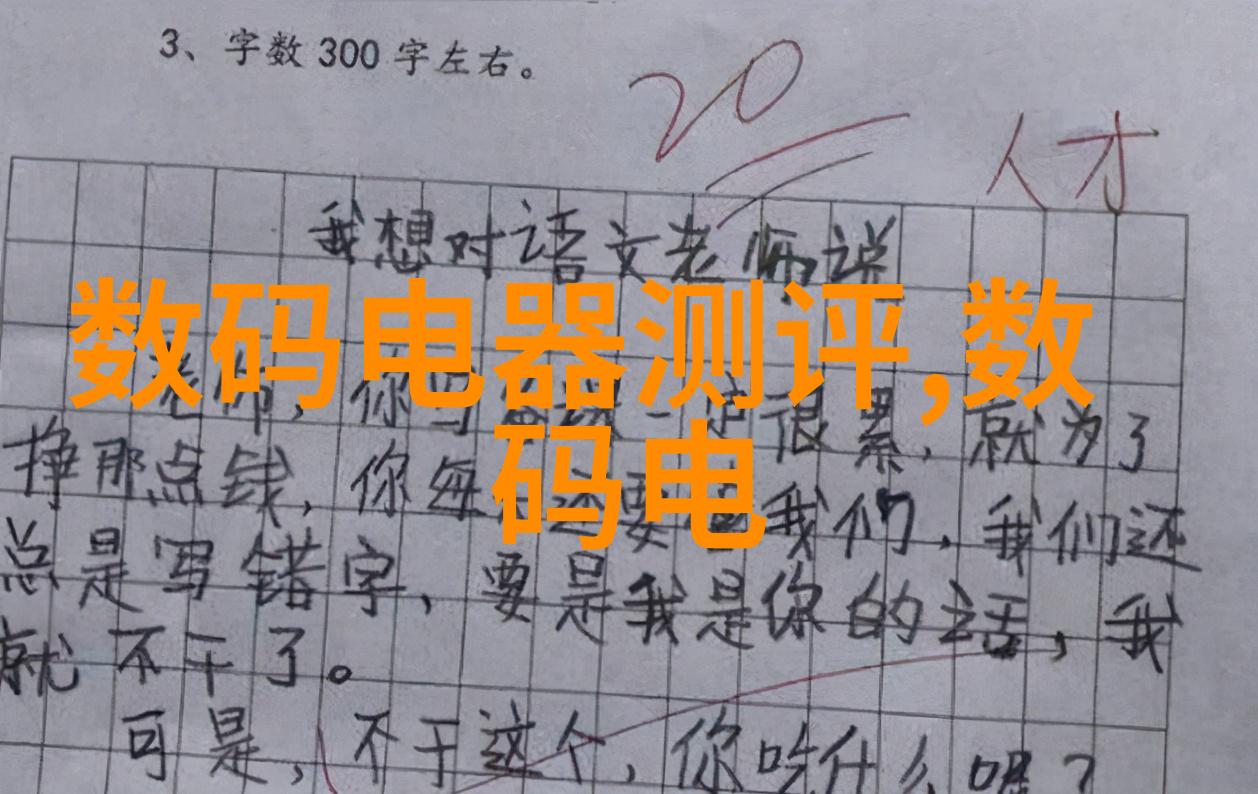 3、字数 300 字左右。
20
人才
我想对语文老师说
数码电器测评,数
码电
老师，你写 一定很累，就为了
挣那点钱，你每 要 我们，我们还
总是写错字，要是我是你的话，我
就不干了。
可是，不干这个，你吃什么呢？